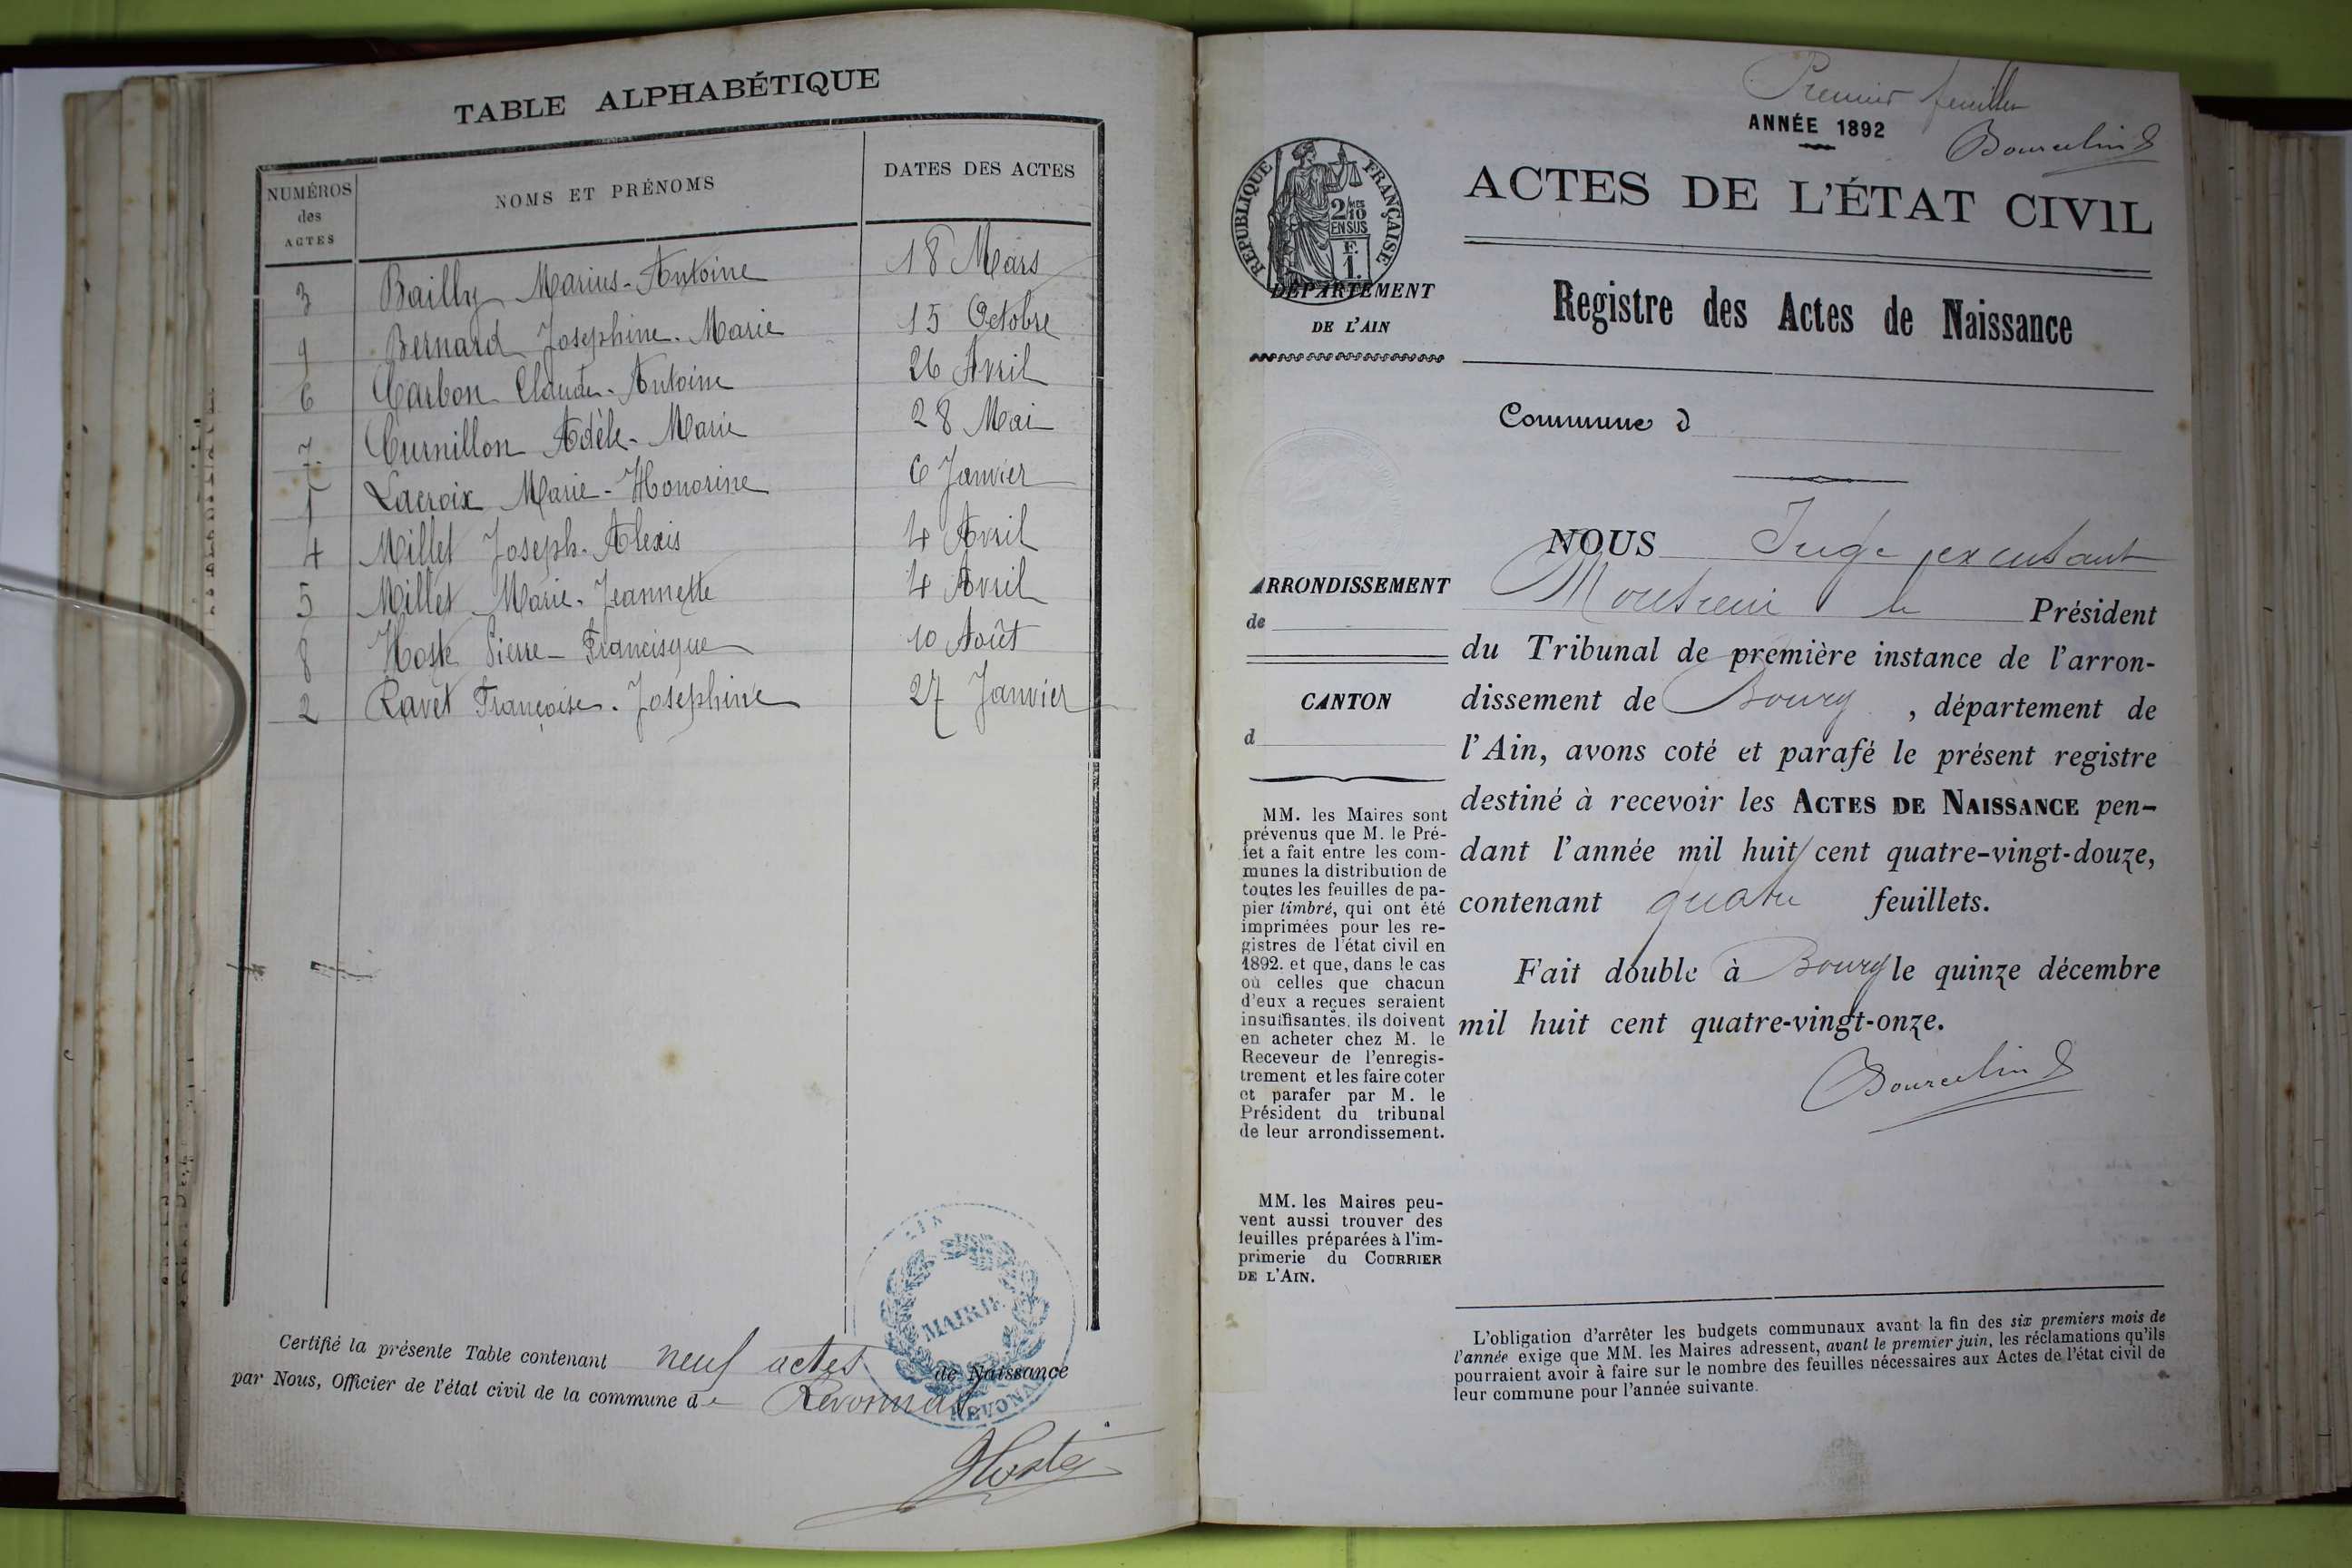 TABLE ALPHABÉTIQUE
NUMÉROS des ACTES
NOMS ET PRÉNOMS
DATES DES ACTES
3 Bailly Marius-Antoine 18 Mars
9 Bernard Josephine-Marie 15 Octobre
6 Carbon Claude-Antoine 26 Avril
7 Curnillon Adèle-Marie 28 Mai
1 Lacroix Marie-Honorine 6 Janvier
4 Millet Joseph-Alexis 4 Avril
5 Millet Marie-Jeannette 4 Avril
8 Hoste Pierre-Francisque 10 Août
2 Ravet Françoise-Joséphine 27 Janvier
Certifié la présente Table contenant neuf actes de Naissance
par Nous, Officier de l'état civil de la commune de Revonnas
AIN
MAIRIE
REVONNAS
Hoste
Premier feuillet
ANNÉE 1892
Bourcelin
RÉPUBLIQUE FRANÇAISE
2/10
EN SUS
F.
1.
ACTES DE L'ÉTAT CIVIL
DÉPARTEMENT
DE L'AIN
Registre des Actes de Naissance
Commune d
ARRONDISSEMENT
de
CANTON
d
MM. les Maires sont
prévenus que M. le Pré-
fet a fait entre les com-
munes la distribution de
toutes les feuilles de pa-
pier timbré, qui ont été
imprimées pour les re-
gistres de l'état civil en
1892. et que, dans le cas
où celles que chacun
d'eux a reçues seraient
insuffisantes, ils doivent
en acheter chez M. le
Receveur de l'enregis-
trement et les faire coter
et parafer par M. le
Président du tribunal
de leur arrondissement.
MM. les Maires peu-
vent aussi trouver des
feuilles préparées à l'im-
primerie du COURRIER
DE L'AIN.
NOUS Juge excusant
Monsieur le Président
du Tribunal de première instance de l'arron-
dissement de Bourg , département de
l'Ain, avons coté et parafé le présent registre
destiné à recevoir les ACTES DE NAISSANCE pen-
dant l'année mil huit cent quatre-vingt-douze,
contenant quatre feuillets.
Fait double à Bourg le quinze décembre
mil huit cent quatre-vingt-onze.
Bourcelin
L'obligation d'arrêter les budgets communaux avant la fin des six premiers mois de
l'année exige que MM. les Maires adressent, avant le premier juin, les réclamations qu'ils
pourraient avoir à faire sur le nombre des feuilles nécessaires aux Actes de l'état civil de
leur commune pour l'année suivante.